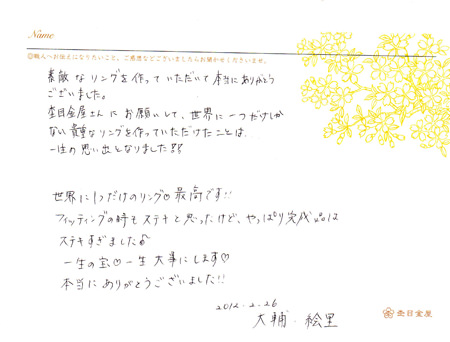 Name
◎職人へお伝えになりたいこと、ご感想などございましたらお聞かせくださいませ。
素敵なリングを作っていただいて本当にありがとう
ございました。
杢目金屋さんにお願いして、世界に一つだけしか
ない貴重なリングを作っていただけたことは、
一生の思い出となりました!!
世界に1つだけのリング♡最高です!!
フィッティングの時もステキと思ったけど、やっぱり完成品は
ステキすぎました♪
一生の宝♡一生大事にします♡
本当にありがとうございました!!
2012.2.26
大輔・絵里
杢目金屋